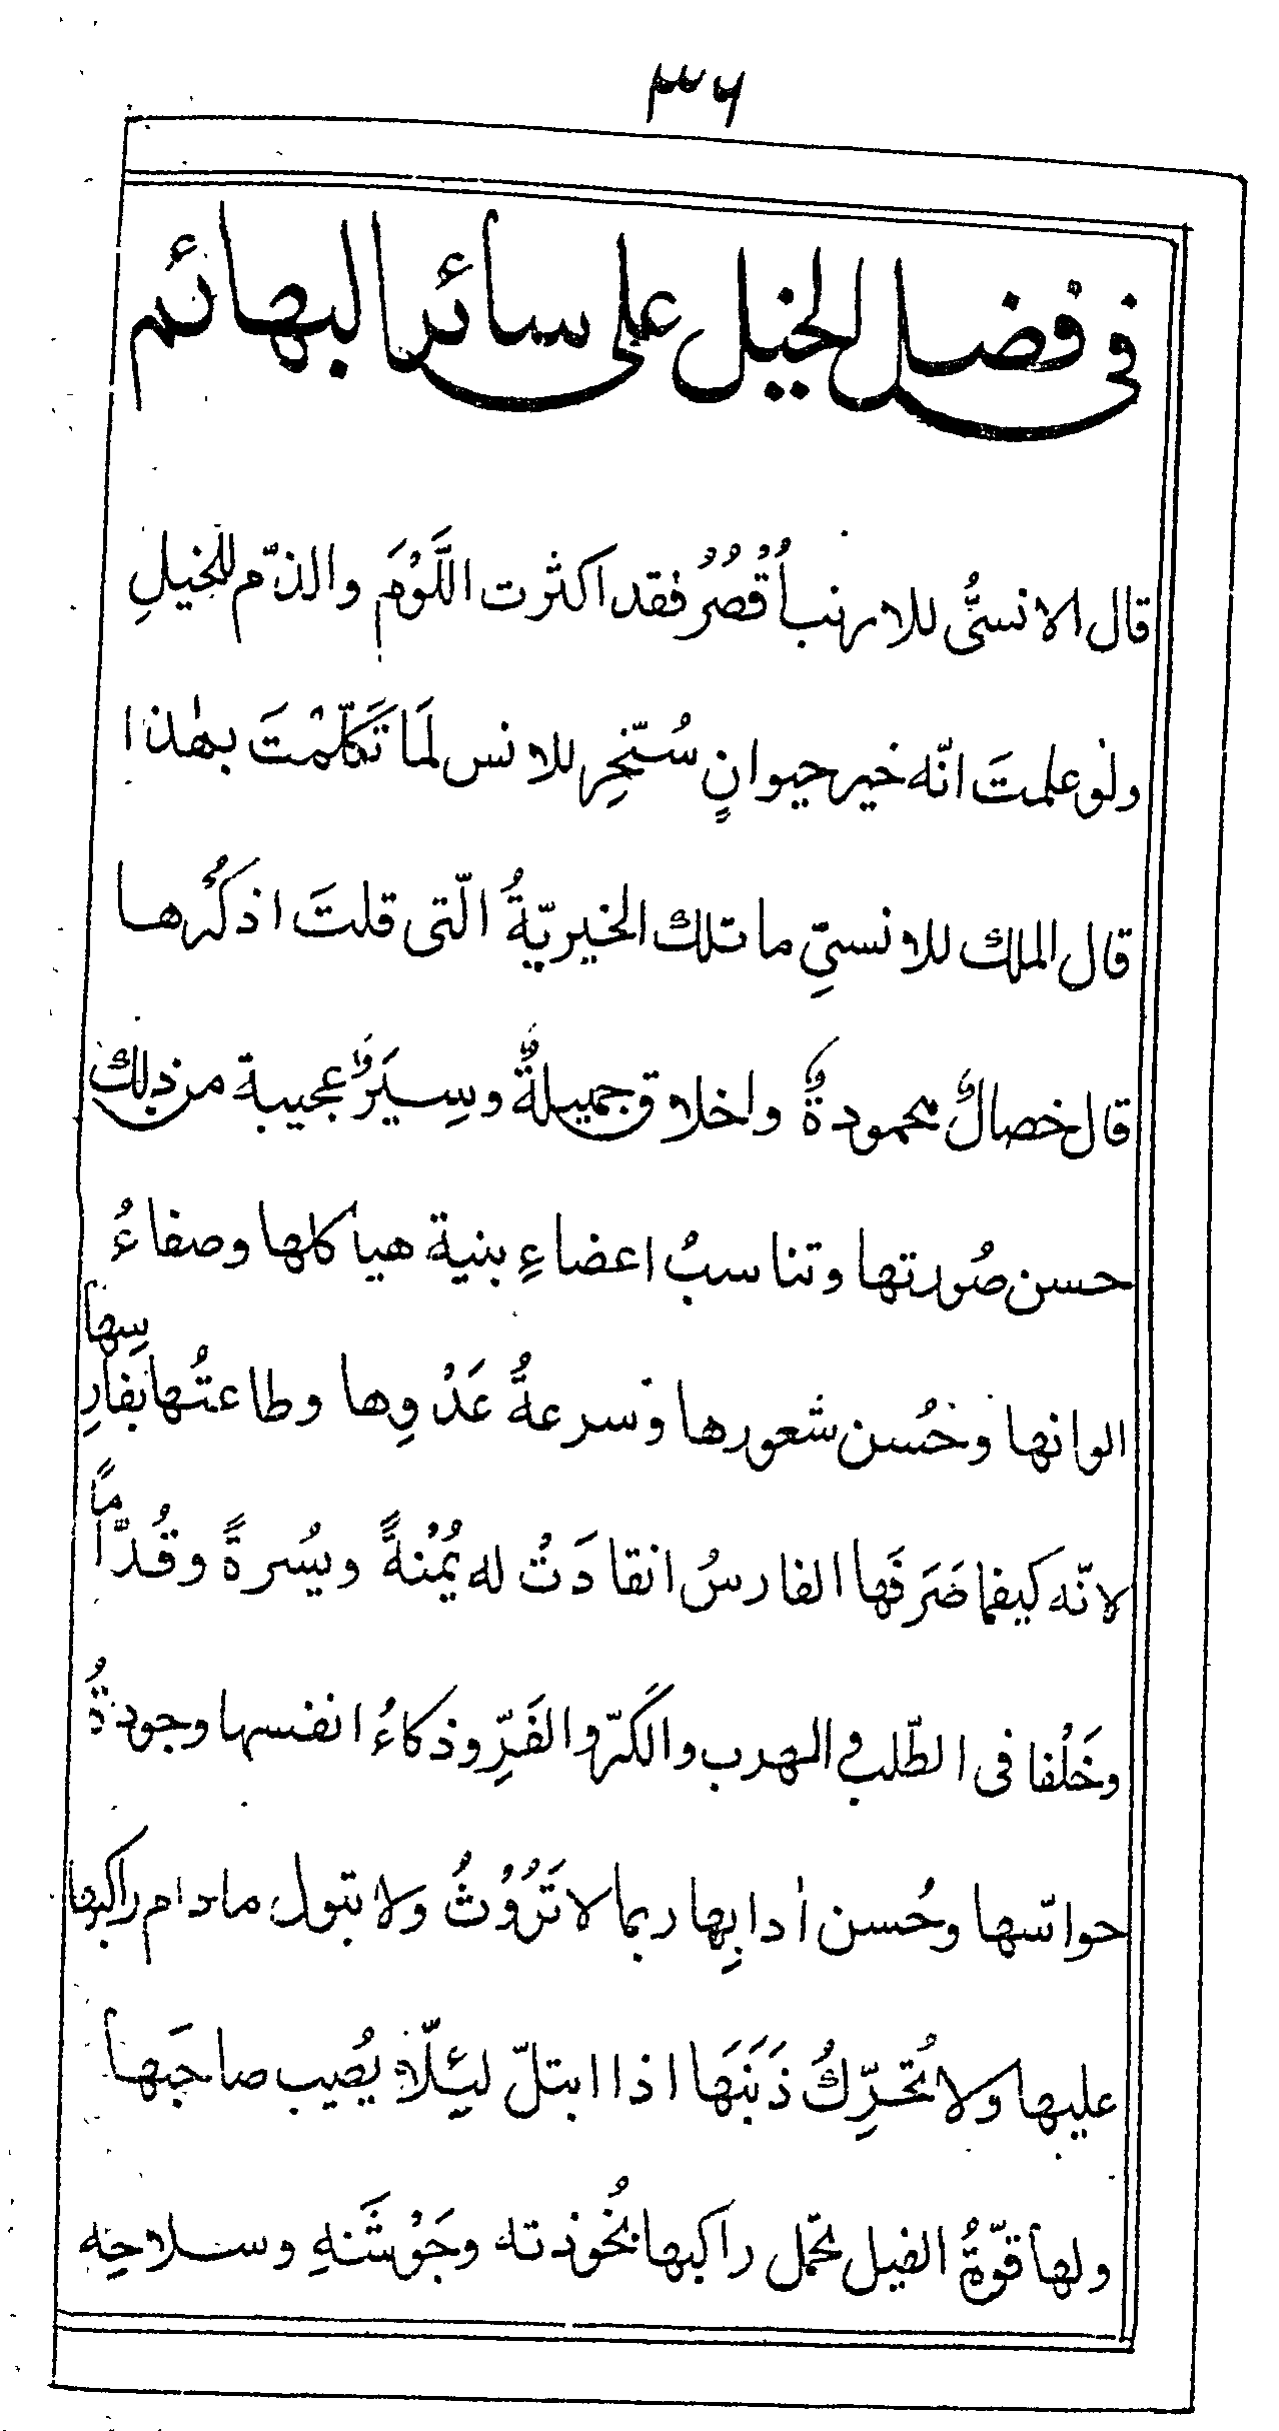 ٣٦
في فضل الخيل على سائر البهائم
قال الانسىُّ للارنب أُقْصُرْ فقد اكثرت اللَّوْمَ والذّم للخيلِ
ولو علمتَ انّه خير حيوانٍ سُخِّر للانس لَمَا تَكَلَّمْتَ بهٰذا
قال الملك للانسىِّ ما تلك الخيريّةُ الّتى قلتَ اذكُرها
قال خصالٌ محمودةٌ واخلاق جميلةٌ وسِيَرٌ عجيبة من ذلك
حسن صُورتها وتناسبُ اعضاءِ بنية هياكلها وصفاءُ
الوانها وحُسن شعورها وسرعةُ عَدْوِها وطاعتُها لفارِسِها
لانّه كيفما صَرَفَها الفارسُ انقادَتْ له يُمْنةً ويُسرةً وقُدَّاماً
وخَلْفا فى الطّلب و الهرب والكَرّ والفَرِّ وذكاءُ انفسها وجودةُ
حواسّها وحُسن اٰدابِها ربما لا تَرُوْثُ ولا تبول ما دام راكبها
عليها ولا تُحَرِّكُ ذَنَبَهَا اذا ابتلّ لِئلّا يُصيب صاحبَها
ولها قوّةُ الفيل تحْمل راكبها بخُوذته وجَوْشَنهِ وسلاحِه